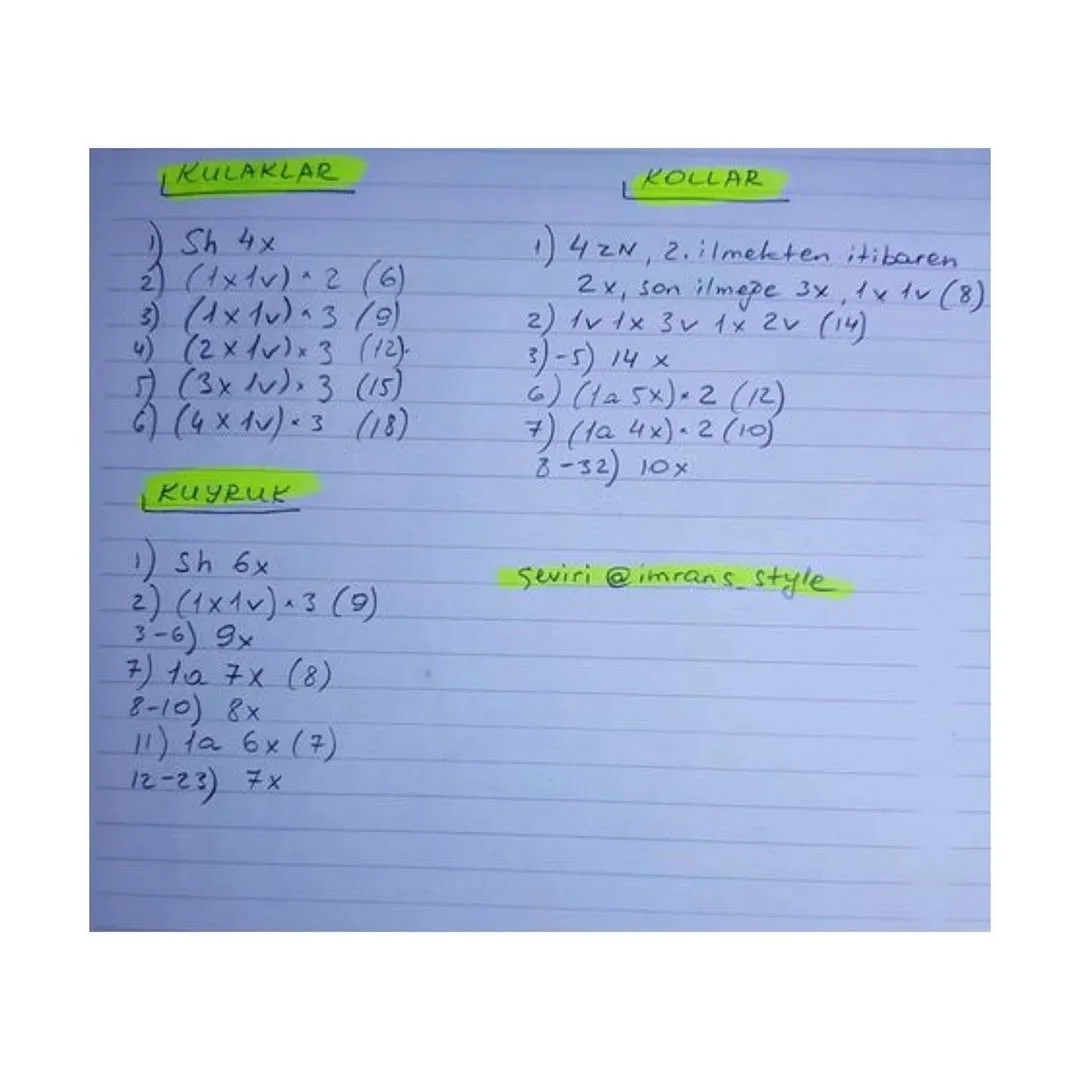 KULAKLAR
1) Sh 4x
2) (1x1v)*2 (6)
3) (1x1v)*3 (9)
4) (2x1v)*3 (12).
5) (3x1v)*3 (15)
6) (4x1v)*3 (18)
KUYRUK
1) Sh 6x
2) (1x1v)*3 (9)
3-6) 9x
7) 1a 7x (8)
8-10) 8x
11) 1a 6x (7)
12-23) 7x
KOLLAR
1) 4 zN, 2. ilmekten itibaren
2x, son ilmeğe 3x, 1x 1v (8)
2) 1v 1x 3v 1x 2v (14)
3)-5) 14 x
6) (1a 5x)*2 (12)
7) (1a 4x)*2 (10)
8-32) 10x
Çeviri @imrans_style